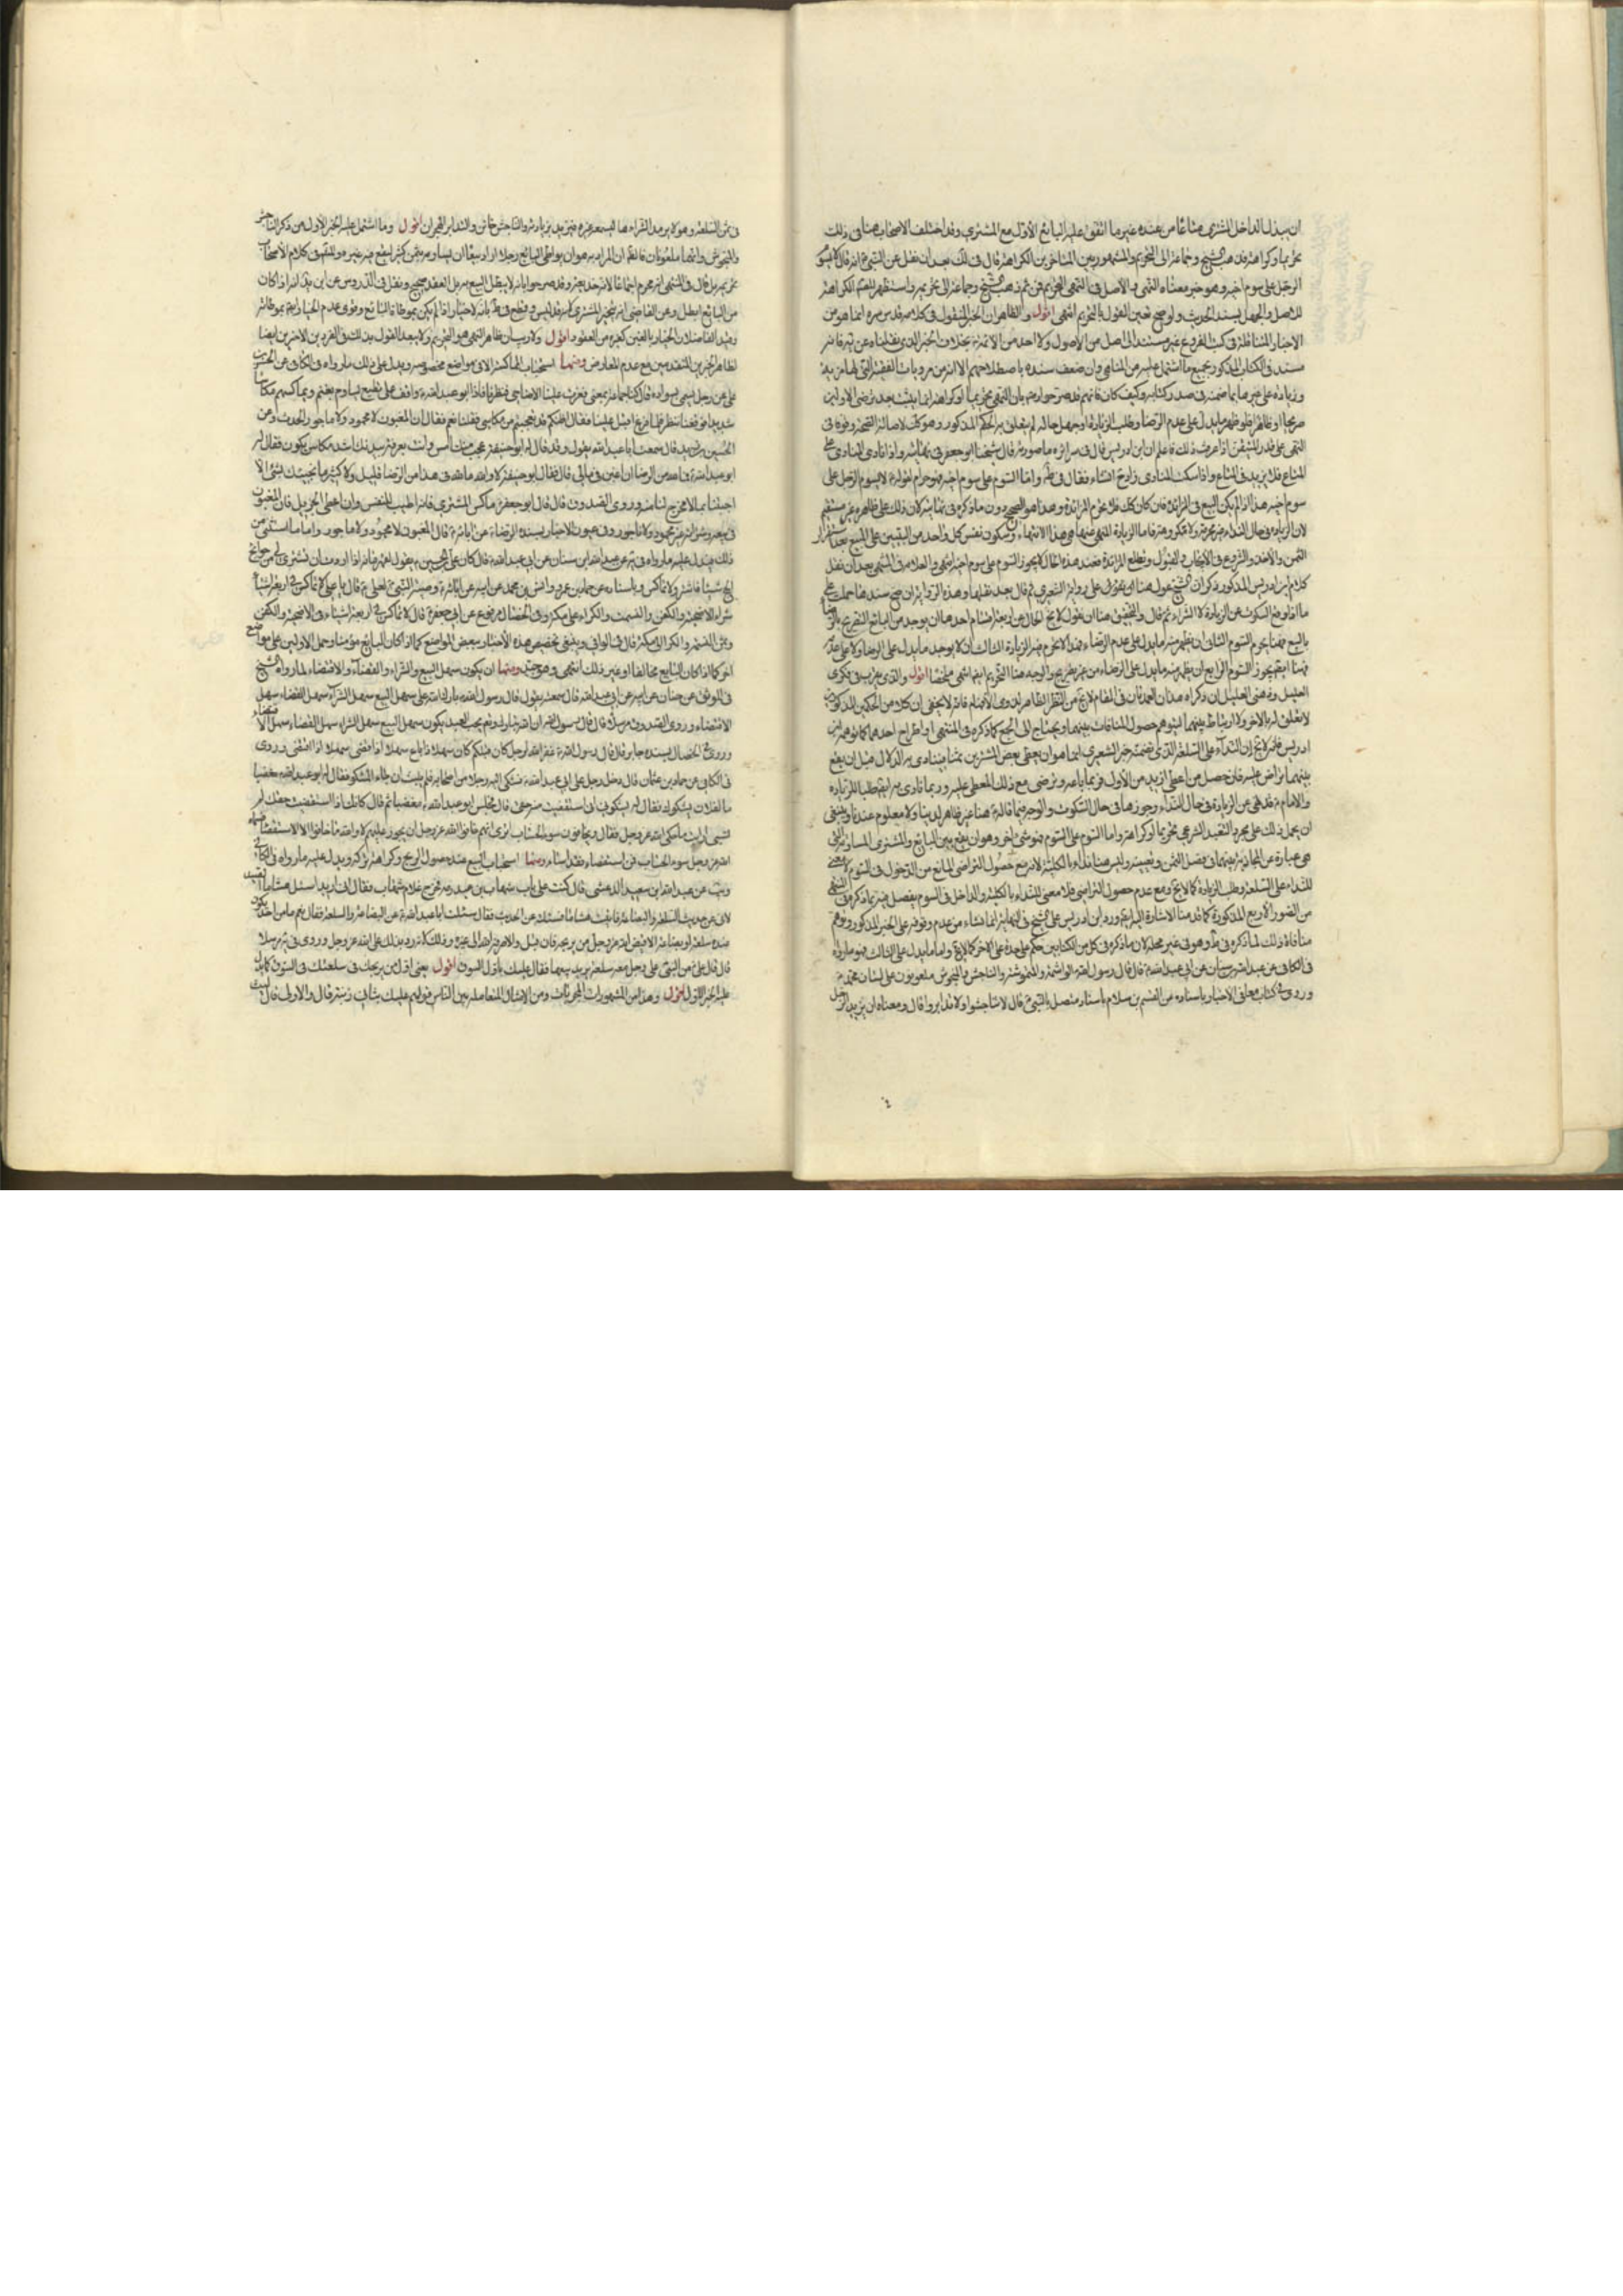 ان يبذل الداخل للمشتري متاعا من عنده غير ما اتفق عليه البايع الاول مع المشتري وقد اختلف الاصحاب هنا في ذلك
تحريما وكراهة فذهب الشيخ وجماعة الى التحريم والمشهور بين المتاخرين الكراهة قال في لك بعد ان نقل عن النبي ص انه قال لا يسوم
الرجل على سوم اخيه وهو خبر معناه النهي والاصل في النهي التحريم فمن ثم ذهب الشيخ وجماعة الى تحريمه واستظهر الكراهة
للاصل والجهل بسند الحديث ولو صح تعين القول بالتحريم انتهى اقول والظاهر ان الخبر المنقول في كلامه قدس سره انما هو من
الاخبار في كتب الفروع غير مستند الى اصل من الاصول ولا احد من الائمة ع بخلاف الخبر الذي نقلناه عن يه فانه
مسند في الكتاب المذكور بجميع ما اشتمل عليه من المناهي وان ضعف سنده باصطلاحهم الا انه من مرويات الفقيه التي لها مزيد
وزيادة على غيرها بما ضمنه في صدر كتابه وكيف كان فانهم قد صرحوا بان النهي تحريما او كراهة انما يثبت بعد تراضي الاولين
صريحا او ظاهرا فلو ظهر ما يدل على عدم الرضا وطلب الزيادة او جهل حاله لم يتعلق به الحكم المذكور وهو كذلك لاصالة الصحة وقوفا في
النهي على قدر المتيقن اذا عرفت ذلك فاعلم ان ابن ادريس قال في سرائره ما صورته قال شيخنا ابو جعفر في نهايته واذا نادى المنادي على
المتاع فلا يزيد في المتاع واذا سكت المنادي زاد ح انشاء فقال في ط واما السوم على سوم اخيه فهو حرام لقوله ع لا يسوم الرجل على
سوم اخيه هذا اذا لم يكن البيع في المزائدة فان كان كذلك فلا تحرم المزائدة وهذا هو الصحيح دون ما ذكره في نهايته لان ذلك على ظاهره غير مستقيم
لان الزيادة في حال النداء غير محرمة ولا مكروهة فاما الزيادة المنهي عنها هي هذا الانتهاء وسكون نفس كل واحد من البيعين على البيع بعد استقرار
الثمن والاخذ والشروع في الايجاب والقبول وقطع المزائدة فعند هذه الحال لا يجوز السوم على سوم اخيه انتهى والعلامة في المنتهى بعد ان نقل
كلام ابن ادريس المذكور وذكر ان الشيخ عول هنا على رواية الشعيري ثم قال بعد نقلها وهذه الرواية ان صح سندها حملت على
ما اذا وقع السكوت عن الزيادة لا الشراء ثم قال والتحقيق هنا ان نقول لا يخ الحال عن اربعة اقسام احدها ان يوجد من البايع التصريح بالرضا
بالبيع فهنا يحرم السوم الثاني ان يظهر منه ما يدل على عدم الرضاء فهذا لا تحرم فيه الزيادة الثالث ان لا يوجد ما يدل على الرضا ولا على عدمه
فهنا ايضا يجوز السوم الرابع ان يظهر منه ما يدل على الرضاء من غير تصريح والوجه هنا التحريم ايضا انتهى ملخصا اقول والذي يقرب في فكري
العليل وذهني الكليل ان ذكر اه هذان العمدتان في المقام لا يخ من النظر الظاهر لذوي الافهام فانه لا يخفى ان كلا من الحكمين المذكورين
لا تعلق له بالاخر ولا ارتباط بينهما ليتوهم حصول المنافات بينهما ويحتاج الى الجمع كما ذكره في المنتهى او اطراح احدهما كما توهم ابن
ادريس فانه لا يخ ان النداء على السلعة الذي تضمنه خبر الشعيري انما هو ان يعطي بعض المشترين ثمنا ينادى به الدلال قبل ان يقع
بينهما تراض عليه فان حصل من اعطى ازيد من الاول فربما باعه ورضي مع ذلك المعطى عليه وربما نادى به ايضا طلبا للزيادة
والامام ع قد نهى عن الزيادة في حال النداء وجوزها في حال السكوت والوجه فيما قاله ع هنا غير ظاهر لدينا ولا معلوم عندنا وينبغي
ان يحمل ذلك على مجرد التعبد الشرعي تحريما او كراهة واما السوم على السوم فهو شيء اخر وهو ان يقع بين البايع والمشتري المساومة التي
هي عبارة عن المجاذبة بينهما في فصل الثمن وتعيينه وليس هنا نداء بالكلية لانه مع حصول التراضي المانع من الدخول في السوم لا معنى
للنداء على السلعة وطلب الزيادة كما لا يخ ومع عدم حصول التراضي فلا معنى للنداء بالكلية والداخل في السوم يفصل فيه بما ذكر في المنتهى
من الصور الاربع المذكورة كما قدمنا الاشارة اليه ورد ابن ادريس على الشيخ في النهاية انما نشاء من عدم وقوفه على الخبر المذكور وتوهم
منافاة ذلك لما ذكره في ط وهو في غير محله لان ما ذكره في كل من الكتابين حكم على حدة غير الاخر كما لا يخ واما ما يدل على الثالث فهو ما رواه
في الكافي عن عبد الله بن سنان عن ابي عبد الله ع قال قال رسول الله ص الواشمة والموتشمة والناجش والمنجوش ملعونون على لسان محمد ص
وروى في كتاب معاني الاخبار باسناده عن القسم بن سلام باسناد متصل بالنبي ص قال لا تناجشوا ولا تدابروا قال ومعناه ان يزيد الرجل
في ثمن السلعة وهو لا يريد الشراء ها ليسمعه غيره فيزيد بزيادته والناجش خائن والتدابر الهجران اقول وما اشتمل عليه الخبر الاول من ذكر الناجش
والمنجوش وانهما ملعونان فالظ ان المراد به هو ان يواطئ البايع رجلا اذا اراد بيعا ان يساومه بثمن كثير ليقع فيه غيره والمشهور في كلام الاصحاب
تحريمه بل قال في المنتهى انه محرم اجماعا لانه خديعة وقد صرحوا بانه لا يبطل البيع به بل العقد صحيح ونقل في الدروس عن ابن الجنيد انه اذا كان
من البايع ابطل وعن القاضي انه يتخير المشتري لانه تدليس وقطع في ط بانه لا خيار اذا لم يكن بمواطاة البايع وقوى عدم الخيار ايضا بمواطاته
وقيد الفاضلان الخيار بالغبن كغيره من العقود اقول ولا ريب ان ظاهر النهي هو التحريم ولا يبعد القول بذلك في الفردين الاخرين ايضا
لظاهر الخبرين المتقدمين مع عدم المعارض ومنها استحباب المماكسة الا في مواضع مخصوصة ويدل على ذلك ما رواه في الكافي عن الحسين
علي عن رجل يسمى سوادة قال كنا جماعة بمنى فعزت علينا الاضاحي فنظرنا فاذا ابو عبد الله ع واقف على قطيع يساوم بغنم ويماكسهم مكاسا
شديدا فوقفنا ننتظر فلما فرغ اقبل علينا فقال اظنكم قد تعجبتم من مكاسي فقلنا نعم فقال ان المغبون لا محمود ولا ماجور الحديث وعن
الحسين بن يزيد قال سمعت ابا عبد الله ع يقول وقد قال له ابو حنيفة عجب منك امس وانت بعرفة ببدنك اشد مكاس يكون فقال له
ابو عبد الله ع وما لله من الرضا ان اغبن في مالي قال فقال ابو حنيفة لا والله ما لله في هذا من الرضا قليل ولا كثير ما نجيئك بشيء الا
اجبتنا بما لا مخرج لنا منه وروى الصدوق قال قال ابو جعفر ع ماكس المشتري فانه اطيب للنفس وان اعطى الجزيل فان المغبون
في بيعه وشرائه غير محمود ولا ماجور وفي عيون الاخبار بسنده الرضا ع عن ابائه ع قال المغبون لا محمود ولا ماجور واما ما استثني من
ذلك فيدل عليه ما رواه في يه عن عبد الله بن سنان عن ابي عبد الله ع قال كان علي بن الحسين ع يقول لقهرمانه اذا اردت ان تشتري لي من حوائج
الحج شيئا فاشتر ولا تماكس وباسناده عن حماد بن عمرو وانس بن محمد عن ابيه عن ابائه ع في وصية النبي ص لعلي ع قال يا علي لا تماكس في اربعة اشياء
شراء الاضحية والكفن والنسمة والكراء على مكة وفي الخصال مرفوع عن ابي جعفر ع قال لا تماكس في اربعة اشياء في الاضحية والكفن
وثمن النسمة والكراء الى مكة قال في الوافي وينبغي تخصيص هذه الاخبار ببعض المواضع كما اذا كان البايع مؤمنا وحمل الاولين على مواضع
اخر كما اذا كان البايع مخالفا او غير ذلك انتهى وهو جيد ومنها ان يكون سهل البيع والشراء والقضاء والاقتضاء لما رواه الشيخ
في الموثق عن حنان عن ابيه عن ابي عبد الله قال سمعته يقول قال رسول الله ص بارك الله على سهل البيع سهل الشراء سهل القضاء سهل
الاقتضاء وروى الصدوق مرسلا قال قال رسول الله ص ان الله تبارك وتعالى يحب العبد يكون سهل البيع سهل الشراء سهل القضاء سهل الاقتضاء
وروى في الخصال بسنده جابر قال قال رسول الله ص غفر الله لرجل كان قبلكم كان سهلا اذا باع سهلا اذا اقتضى سهلا اذا اقتضى وروى
في الكافي عن حماد بن عثمان قال دخل رجل على ابي عبد الله ع فشكى اليه رجلا من اصحابه فلم يلبث ان جاء المشكو فقال له ابو عبد الله ع مغضبا
ما لفلان يشكوك فقال له يشكوني اني استقضيت منه حقي قال فجلس ابو عبد الله ع مغضبا ثم قال كانك اذا استقضيت حقك لم
تسئ ارايت ما حكى الله عز وجل فقال ويخافون سوء الحساب ترى انهم خافوا الله عز وجل ان يجور عليهم لا والله ما خافوا الا الاستقضاء فسماه
الله عز وجل سوء الحساب فمن استقضاء فقد اساء ومنها استحباب البيع عند حصول الربح وكراهة تركه ويدل عليه ما رواه في الكافي
ويب عن عبد الله بن سعيد الدغشي قال كنت على باب شهاب بن عبد ربه فخرج غلام شهاب فقال اني اريد اسئل هشاما الصيدناني
عن حديث السلعة والبضاعة فاتيت هشاما فسئلته عن الحديث فقال سئلت ابا عبد الله ع عن البضاعة والسلعة فقال نعم ما من احد يكون
عنده سلعة او بضاعة الا قيض الله عز وجل من يربحه فان قبل والا صرفه الى غيره وذلك لانه رد بذلك على الله عز وجل وروى في يه مرسلا
قال قال علي ع مر النبي ص على رجل معه سلعة يريد بيعها فقال عليك باول السوق اقول يعني اول من يربحك في سلعتك في السوق كما يدل
عليه الخبر الاول اقول وهذا من المشهورات المجربات ومن الامثال المتعامله بين الناس قولهم عليك بثاني زبنة قال والاول قال ليت